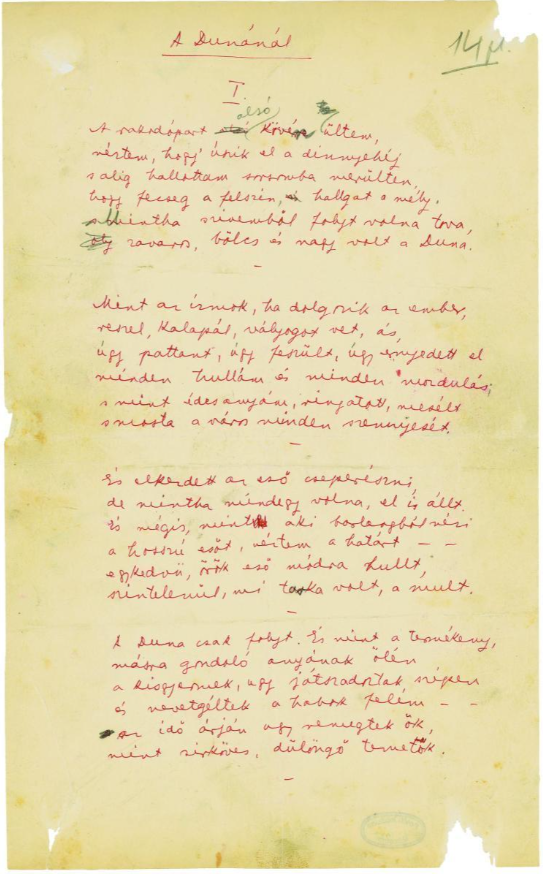 A Dunánál
14 fl.
I.
alsó
A rakodópart kövén ültem,
néztem, hogy úszik el a dinnyehéj
s alig hallottam sorsomba merülten,
hogy fecseg a felszin, hallgat a mély.
Mintha szivemből folyt volna tova,
zavaros, bölcs és nagy volt a Duna.
–
Mint az izmok, ha dolgozik az ember,
reszel, kalapál, vályogot vet, ás,
úgy pattant, úgy feszült, úgy ernyedett el
minden hullám és minden mozdulás,
s mint édesanyám, ringatott, mesélt
s mosta a város minden szennyesét.
–
És elkezdett az eső cseperészni,
de mintha mindegy volna, el is állt.
És mégis, mint aki barlangból nézi
a hosszú esőt, néztem a határt – –
egykedvü, örök eső módra hullt,
szintelenül, mi tarka volt, a mult.
–
A Duna csak folyt. És mint a termékeny,
másra gondoló anyának ölén
a kisgyermek, úgy játszadoztak szépen
és nevetgéltek a habok felém – –
az idő árján úgy remegtek ők,
mint sírköves, dülöngő temetők.
–